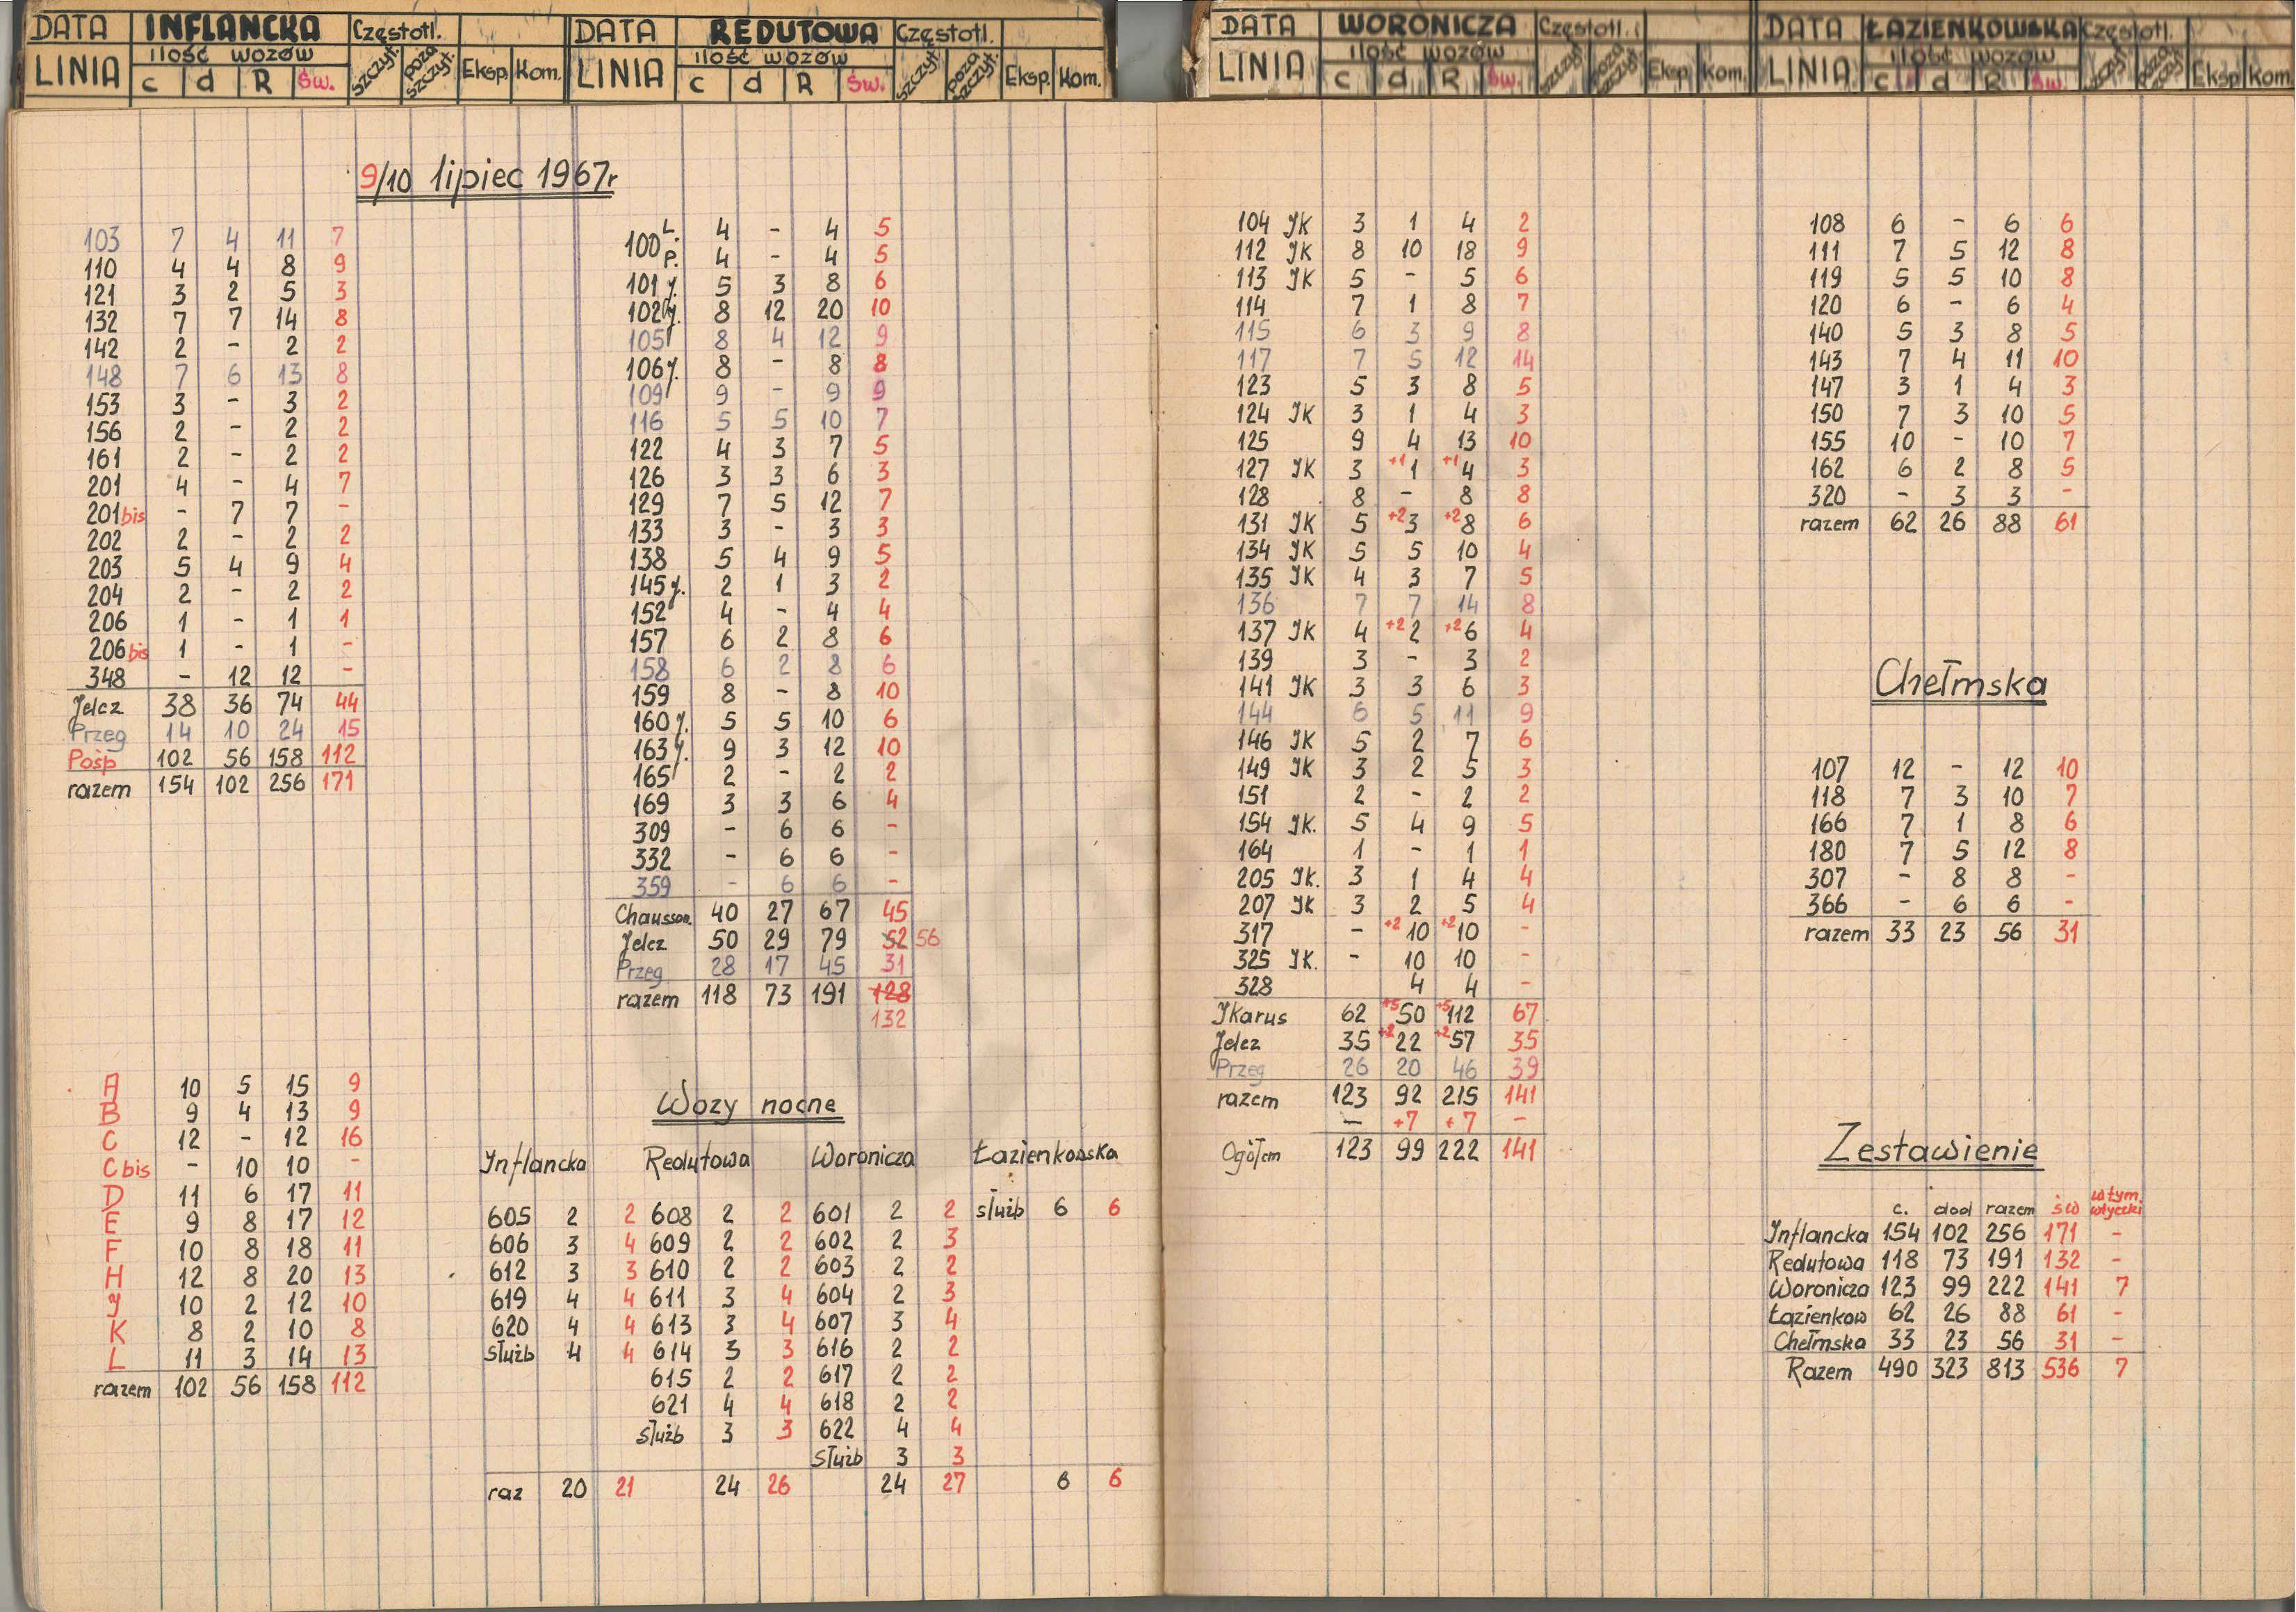 DATA INFLANCKA Częstotl.
LINIA ilość wozów szczyt. poza szczyt. Eksp. Kom.
c d R Św.
9/10 lipiec 1967r
103 7 4 11 7
110 4 4 8 9
121 3 2 5 3
132 7 7 14 8
142 2 - 2 2
148 7 6 13 8
153 3 - 3 2
156 2 - 2 2
161 2 - 2 2
201 4 - 4 7
201bis - 7 7 -
202 2 - 2 2
203 5 4 9 4
204 2 - 2 2
206 1 - 1 1
206bis 1 - 1 -
348 - 12 12 -
Jelcz 38 36 74 44
Przeg 14 10 24 15
Pośp 102 56 158 112
razem 154 102 256 171
A 10 5 15 9
B 9 4 13 9
C 12 - 12 16
C bis - 10 10 -
D 11 6 17 11
E 9 8 17 12
F 10 8 18 11
H 12 8 20 13
J 10 2 12 10
K 8 2 10 8
L 11 3 14 13
razem 102 56 158 112
DATA REDUTOWA Częstotl.
LINIA ilość wozów szczyt. poza szczyt. Eksp. Kom.
c d R Św.
100 L. 4 - 4 5
P. 4 - 4 5
101 J. 5 3 8 6
102 J. 8 12 20 10
105 8 4 12 9
106 J. 8 - 8 8
109 9 - 9 9
116 5 5 10 7
122 4 3 7 5
126 3 3 6 3
129 7 5 12 7
133 3 - 3 3
138 5 4 9 5
145 J. 2 1 3 2
152 4 - 4 4
157 6 2 8 6
158 6 2 8 6
159 8 - 8 10
160 J. 5 5 10 6
163 J. 9 3 12 10
165 2 - 2 2
169 3 3 6 4
309 - 6 6 -
332 - 6 6 -
359 - 6 6 -
Chausson. 40 27 67 45
Jelcz 50 29 79 52 56
Przeg 28 17 45 31
razem 118 73 191 128
132
Wozy nocne
Inflancka Redutowa Woronicza Łazienkowska
605 2 2 608 2 2 601 2 2 służb 6 6
606 3 4 609 2 2 602 2 3
612 3 3 610 2 2 603 2 2
619 4 4 611 3 4 604 2 3
620 4 4 613 3 4 607 3 4
służb 4 4 614 3 3 616 2 2
615 2 2 617 2 2
621 4 4 618 2 2
służb 3 3 622 4 4
służb 3 3
raz 20 21 24 26 24 27 6 6
DATA WORONICZA Częstotl.
LINIA ilość wozów szczyt poza szczyt. Eksp. Kom.
c d R Św.
104 JK 3 1 4 2
112 JK 8 10 18 9
113 JK 5 - 5 6
114 7 1 8 7
115 6 3 9 8
117 7 5 12 14
123 5 3 8 5
124 JK 3 1 4 3
125 9 4 13 10
127 JK 3 +1 1 +1 4 3
128 8 - 8 8
131 JK 5 +2 3 +2 8 6
134 JK 5 5 10 4
135 JK 4 3 7 5
136 7 7 14 8
137 JK 4 +2 2 +2 6 4
139 3 - 3 2
141 JK 3 3 6 3
144 6 5 11 9
146 JK 5 2 7 6
149 JK 3 2 5 3
151 2 - 2 2
154 JK. 5 4 9 5
164 1 - 1 1
205 JK. 3 1 4 4
207 JK 3 2 5 4
317 - +2 10 +2 10 -
325 JK. - 10 10 -
328 4 4 -
JKarus 62 +5 50 +5 112 67
Jelcz 35 +2 22 +2 57 35
Przeg 26 20 46 39
razem 123 92 215 141
- +7 +7 -
Ogółem 123 99 222 141
DATA ŁAZIENKOWSKA Częstotl.
LINIA ilość wozów szczyt poza szczyt. Eksp Kom
c d R Św.
108 6 - 6 6
111 7 5 12 8
119 5 5 10 8
120 6 - 6 4
140 5 3 8 5
143 7 4 11 10
147 3 1 4 3
150 7 3 10 5
155 10 - 10 7
162 6 2 8 5
320 - 3 3 -
razem 62 26 88 61
Chełmska
107 12 - 12 10
118 7 3 10 7
166 7 1 8 6
180 7 5 12 8
307 - 8 8 -
366 - 6 6 -
razem 33 23 56 31
Zestawienie
c. dod razem św w tym wtyczki
Inflancka 154 102 256 171 -
Redutowa 118 73 191 132 -
Woronicza 123 99 222 141 7
Łazienkow 62 26 88 61 -
Chełmska 33 23 56 31 -
Razem 490 323 813 536 7